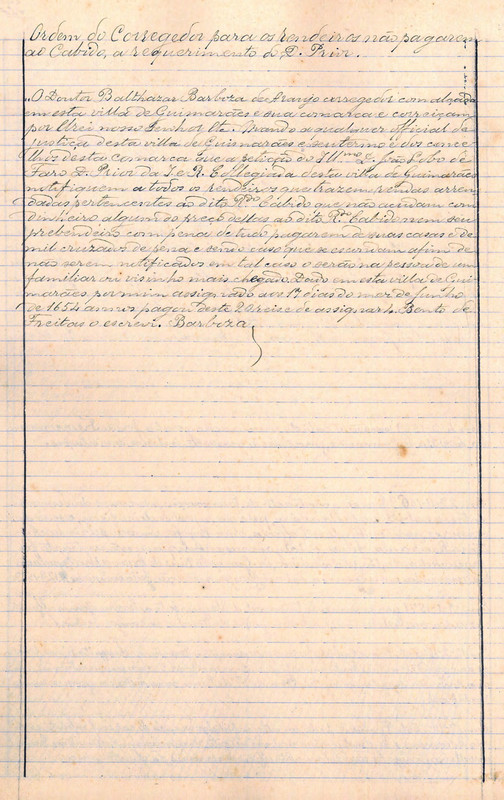 Ordem do Corregedor para os rendeiros não pagarem
ao Cabido, a requerimento do D. Prior.
"O Doutor Balthazar Barboza de Araujo corregedor com alçada
em esta villa de Guimarães e sua comarca e correiçam
por Elrei nosso Senhor &c. Mando a qualquer official de
justiça desta villa de Guimarães e seu termo e dos conce-
lhos desta Comarca que a petição do Illmo S. João Lobo de
Faro D. Prior da I. e R. Collegiada desta villa de Guimarães
notifiquem a todos os rendeiros que trazem rendas arren-
dadas pertencentes ao dito Rdo Cabido que não acudam com
dinheiro algum do preço dellas ao dito Rdo Cabido nem seu
prebendeiro com pena de tudo pagarem de suas casas e de
mil cruzados de pena e sendo caso que se escondam afim de
não serem notificados em tal caso o serão na pessoa de um
familiar ou visinho mais chegado. Dado em esta villa de Gui-
marães por mim assignado aos 17 dias do mez de Junho
de 1654 annos pagou deste 20 reis e de assignar 4. Bento de
Freitas o escrevi. Barboza.